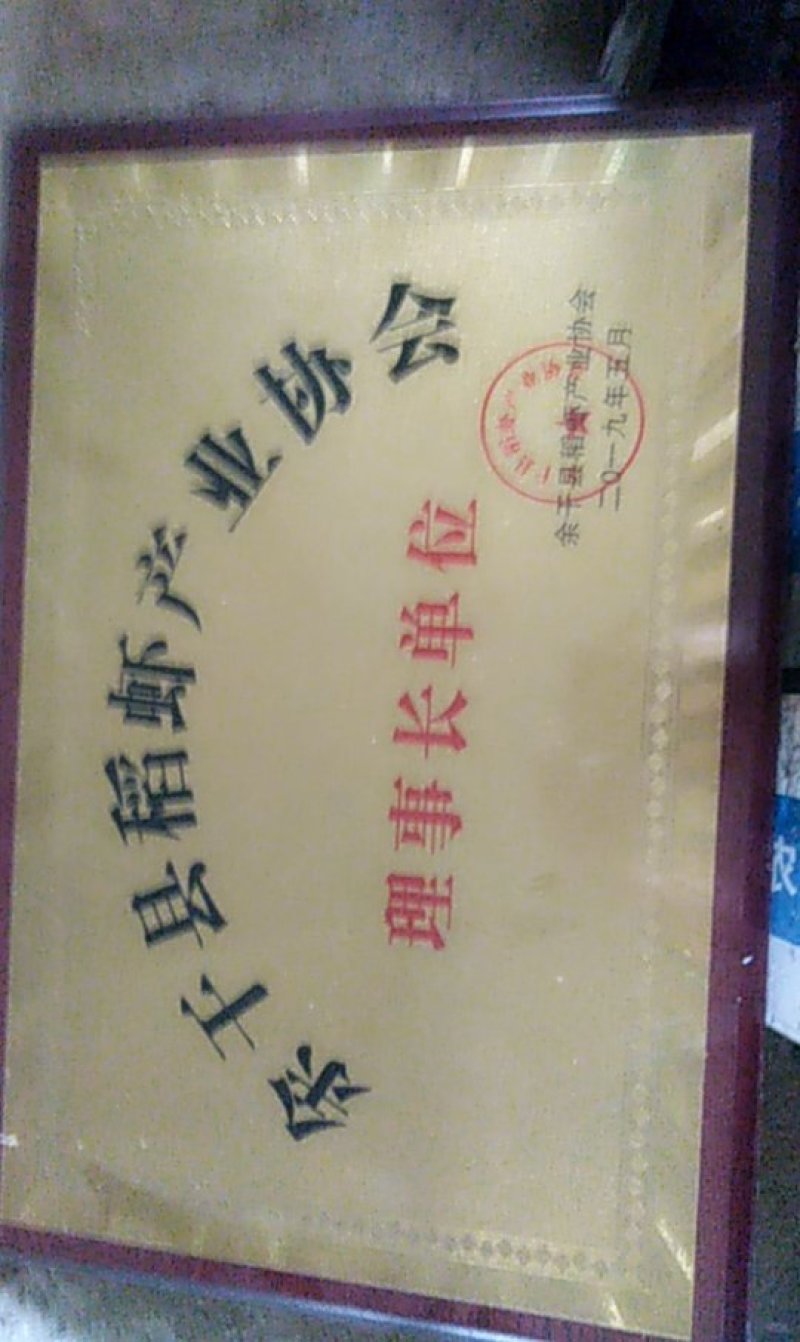 余干县稻虾产业协会
理事长单位
余干县稻虾产业协会
二0一九年五月
农